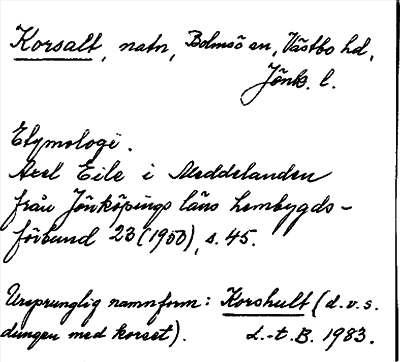 Korsalt, natn, Bolmsö sn, Västbo hd,
Jönk. l.
Etymologi.
Axel Eile i Meddelanden
från Jönköpings läns hembygds-
förbund 23 (1950), s. 45.
Ursprunglig namnform: Korshult (d.v.s.
dungen med korset). L.-t. B. 1983.